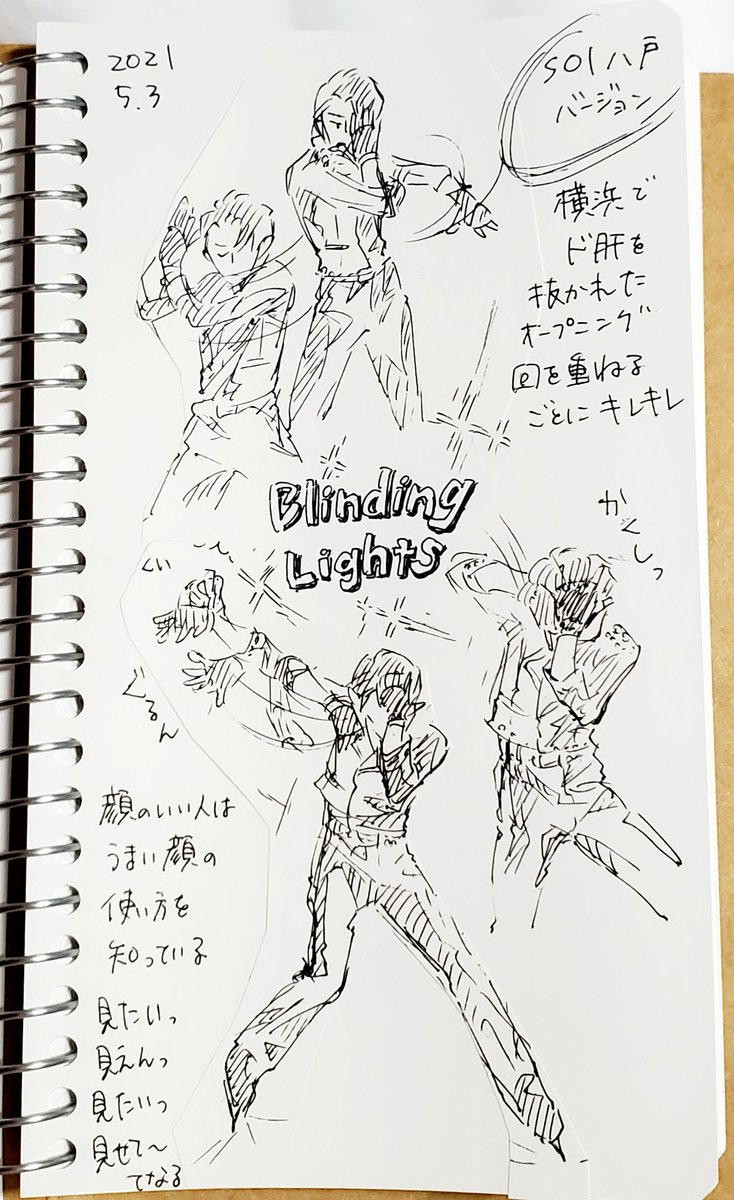 2021
5.3
SOI 八戸
バージョン
横浜で
ド肝を
抜かれた
オープニング
回を重ねる
ごとにキレキレ
Blinding
Lights
かくしっ
くい
ぐるん
顔のいい人は
うまい顔の
使い方を
知っている
見たいっ
見えんっ
見たいっ
見せて〜
てなる